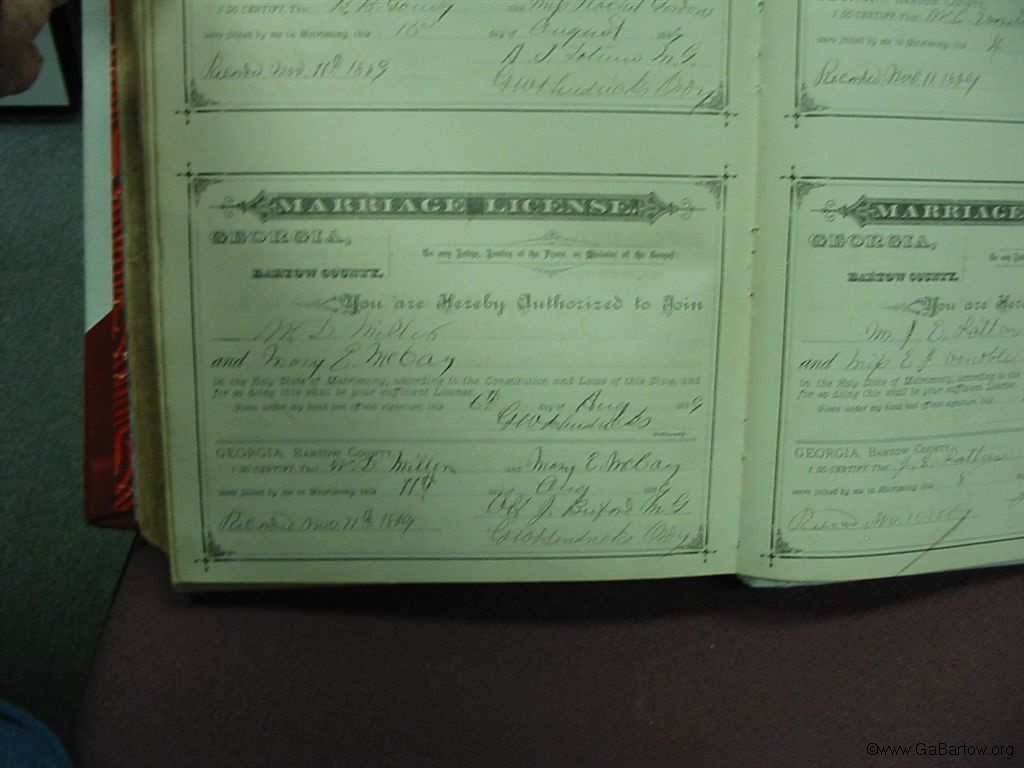 I DO CERTIFY, That B. B. and Miss
were joined by me in Matrimony, this 15th day of August 1889
Recorded Nov. 11th 1889
M G
G W Hendricks Ordy
MARRIAGE LICENSE.
GEORGIA,
BARTOW COUNTY.
To any Judge, Justice of the Peace, or Minister of the Gospel:
You are Hereby Authorized to Join
W. D. Miller
and Mary E. McCay
in the Holy State of Matrimony, according to the Constitution and Laws of this State, and
for so doing this shall be your sufficient License.
Given under my hand and official signature, this 6th day of Aug 1889
G W Hendricks
Ordinary.
GEORGIA, Bartow County.
I DO CERTIFY, That W. D. Miller and Mary E. McCay
were joined by me in Matrimony, this 11th day of Aug 1889
J. Buford M. G.
Recorded Nov. 11th 1889
G W Hendricks Ordy
I DO CERTIFY, That W. C.
were joined by me in Matrimony, this 4
Recorded Nov. 11 1889
MARRIAGE
GEORGIA,
BARTOW COUNTY.
To any
You are Here
Mr. J. E.
and Miss E J
in the Holy State of Matrimony, according to the
for so doing this shall be your sufficient License.
Given under my hand and official signature, this
GEORGIA, Bartow County.
I DO CERTIFY, That J. E.
were joined by me in Matrimony, this 8
Recorded Nov. 11, 1889
©www.GaBartow.org